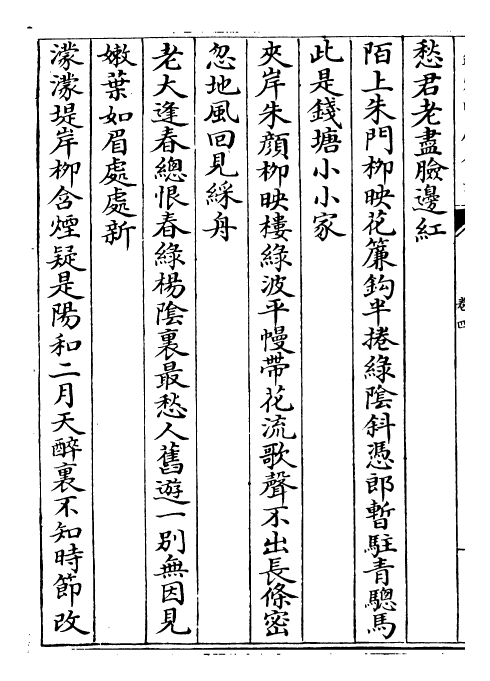 愁君老盡臉邊紅
陌上朱門柳映花簾鈎半捲綠陰斜憑郎暫駐青驄馬
此是錢塘小小家
夾岸朱顏柳映樓綠波平幔帶花流歌聲不出長條密
忽地風回見綵舟
老大逢春總恨春綠楊陰裏最愁人舊遊一別無因見
嫩葉如眉處處新
濛濛堤岸栁含煙疑是陽和二月天醉裏不知時節改
卷四